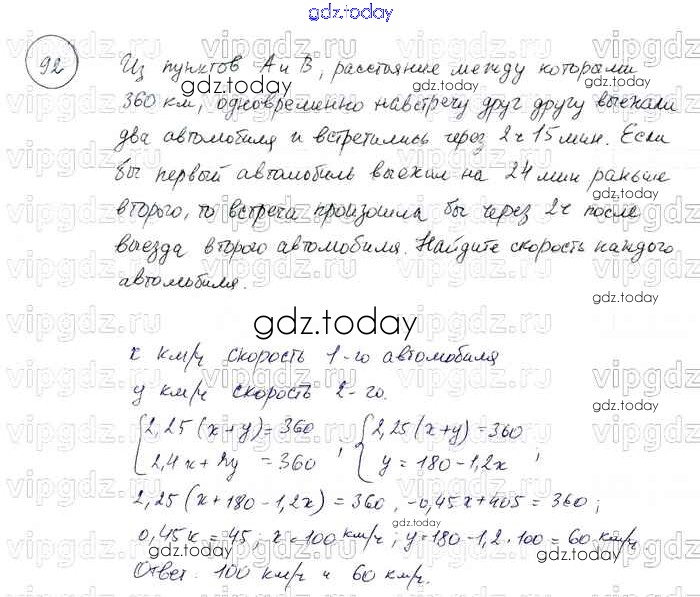 gdz.today
92
Из пунктов А и В, расстояние между которыми
360 км, одновременно навстречу друг другу выехали
два автомобиля и встретились через 2ч 15 мин. Если
бы первый автомобиль выехал на 24 мин раньше
второго, то встреча произошла бы через 2ч после
выезда второго автомобиля. Найдите скорость каждого
автомобиля.
gdz.today
x км/ч скорость 1-го автомобиля
y км/ч скорость 2-го.
{2,25(x+y)=360 , {2,25(x+y)=360
{2,4x+2y =360 {y=180-1,2x ,
2,25(x+180-1,2x)=360, -0,45x+405=360;
0,45x=45, x=100 км/ч, y=180-1,2·100=60 км/ч
Ответ: 100 км/ч и 60 км/ч.